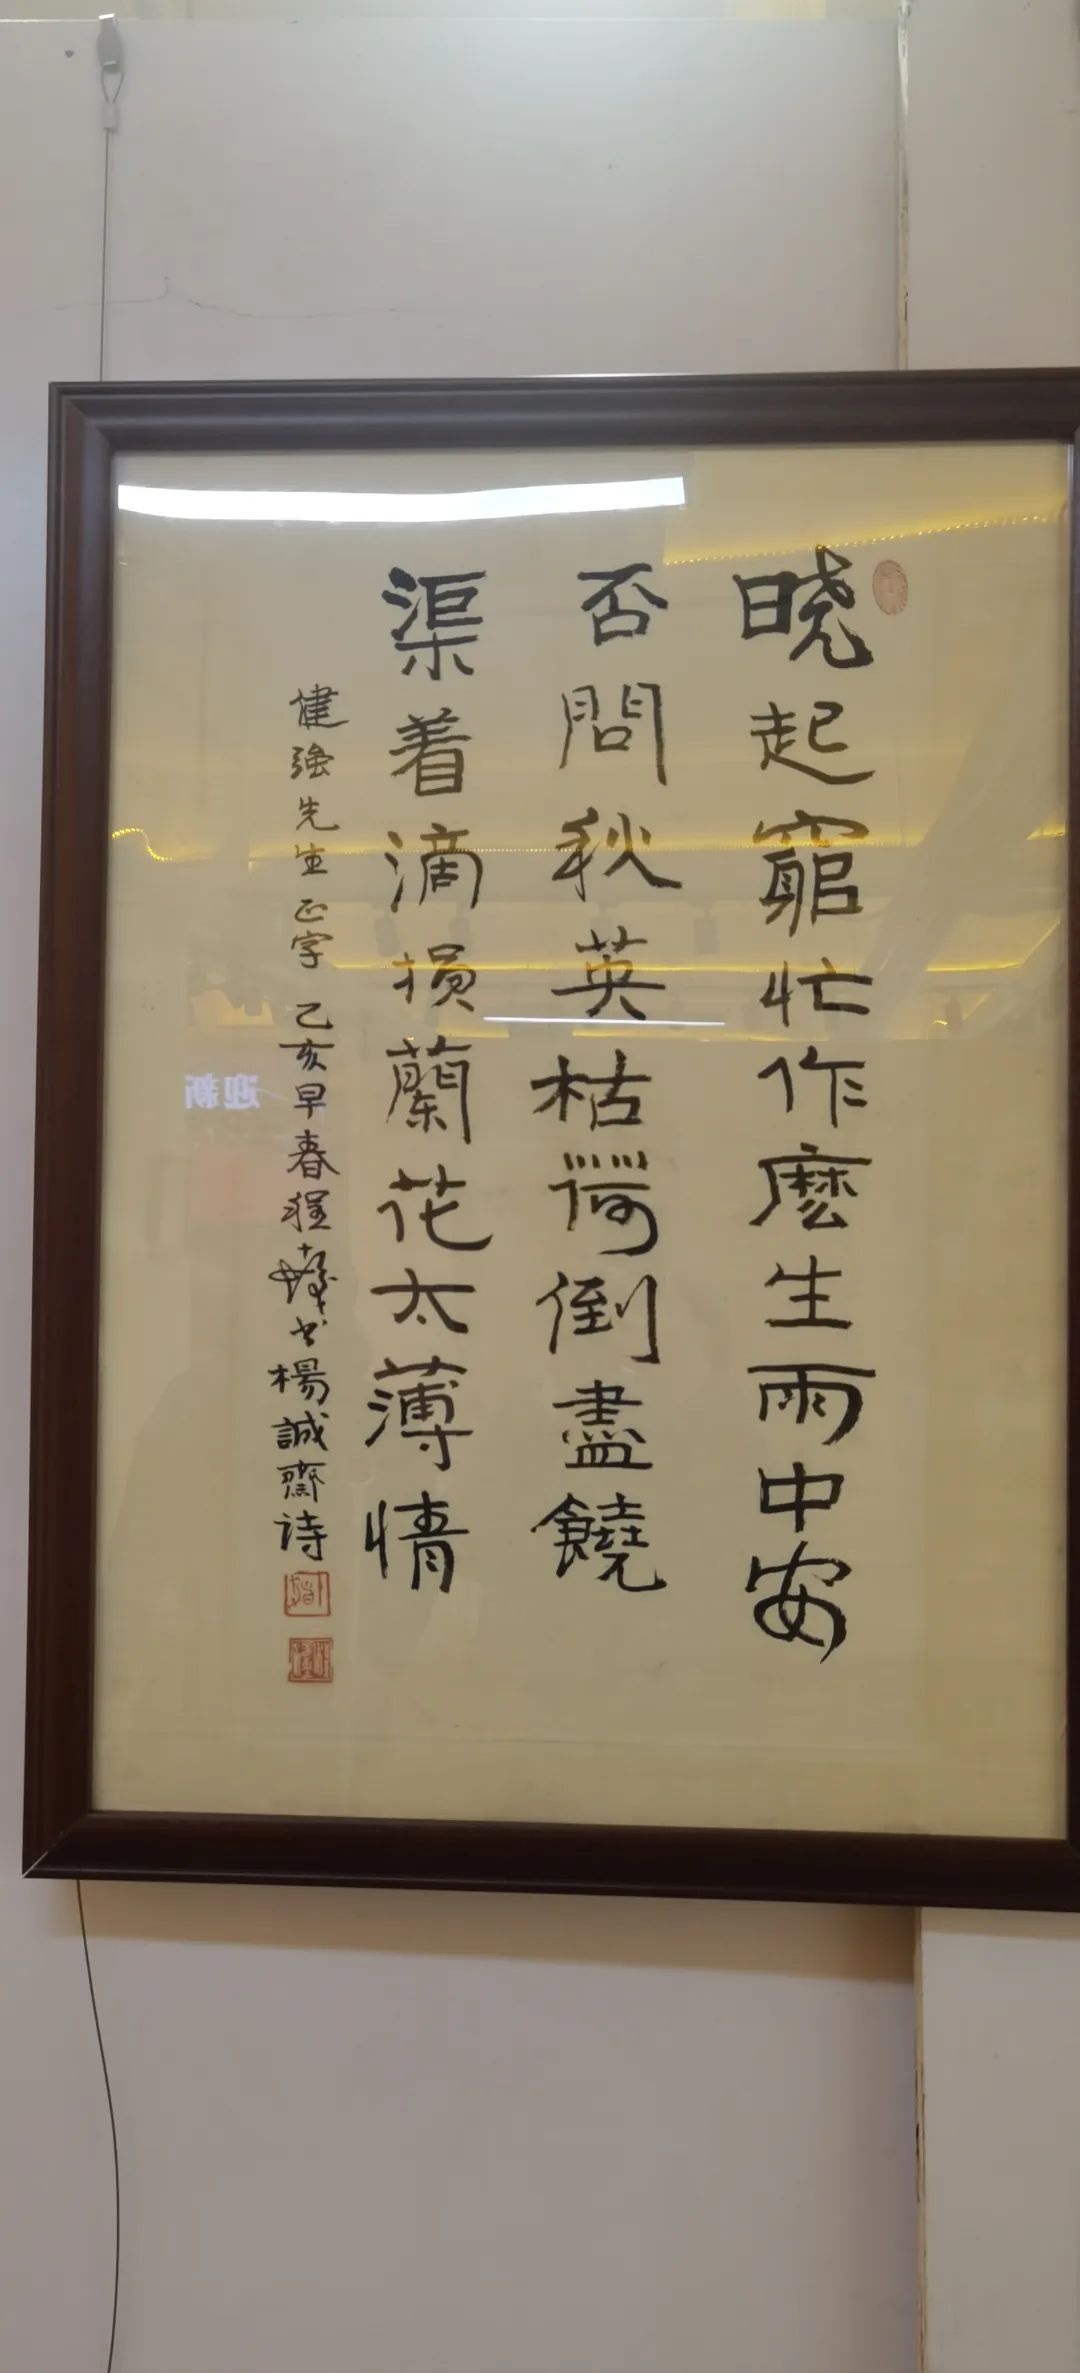 晓起竆忙作麽生雨中安
否問秋英枯荷倒盡饒
渠着滴損蘭花太薄情
健強先生正字 乙亥早春 书楊誠齋诗
迎新